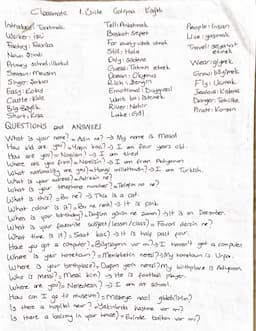 Classmate 1. Ünite Çalışma Kağıdı
Introduce: Tanıtmak
Worker: işçi
Factory: Fabrika
Town:
Primary school: ilkokul
Season: Mevsim
Singer: Şarkıcı
Easy: Kolay
Castle: Kale
Big: Büyük
Short: Kısa
Tell: Anlatmak
Basket: Sepet
For example:
Still: Hala
Only: Sadece
Guess: Tahmin etmek
Ocean: Okyanus
Rich: Zengin
Emotional: Duygusal
Want to: istemek
River: Nehir
Lake: Göl
People: İnsan
Live: yaşamak
Travel: seyahat etmek
Wear: giymek
Grow: büyümek
Fly: Uçmak
Jealous: Kıskanç
Danger: Tehlike
Pirate: Korsan
QUESTIONS and ANSWERS
What is your name? = Adın ne? → My name is Mesud
How old are you? = Kaç yaşındasın? → I am four years old.
How are you? = Nasılsın? → I am tired
Where are you from? = Nerelisin? → I am from Adıyaman
What nationality are you? = → I am Turkish.
What is your adress? = Adresin ne?
What is your telephone number? = Telefon no ne?
What is this? = Bu ne? → This is a cat.
What colour is it? = Bu ne renk? → It is pink
When is your birthday? = Doğum günün ne zaman? → It is on December.
What is your favourite subject/lesson/class? = Favori dersin ne?
What time is it? = Saat kaç? → It is half past four.
Have you got a computer? = Bilgisayarın var mı? → I haven't got a computer.
Where is your hometown? = Memleketin neresi? → My hometown is Urfa.
Where is your birthplace? = Doğum yerin neresi? → My birthplace is Adıyaman
Who is Messi? = Messi kim? → He is football player.
Where are you? = Neredesin? → I am at school.
How can I go to museum? = Müzeye nasıl
Is there a hospital near? = hastane var mı?
Is there a balcony in your house? = Evinde balkon var mı?